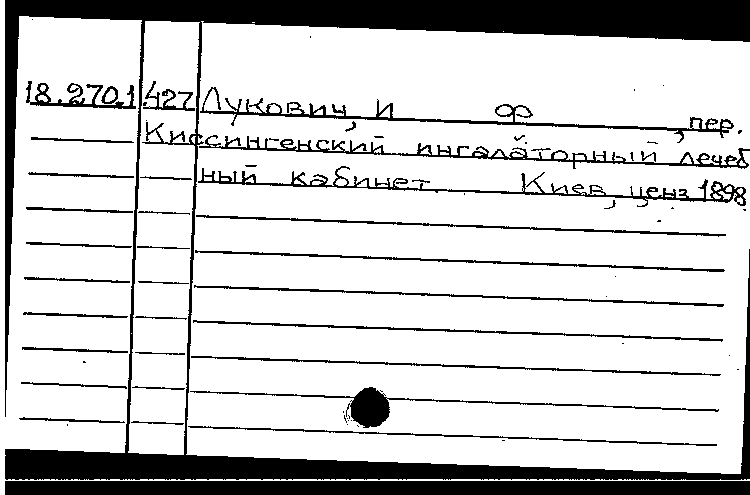 18.270.1 427 Лукович, И Ф , пер.
Киссингенский ингаляторный лечеб
ный кабинет. Киев, ценз 1898